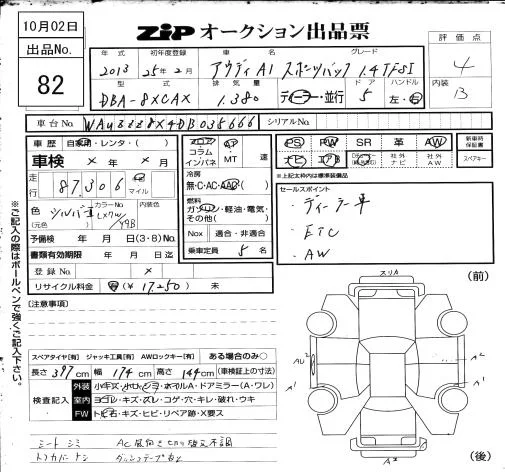 10月02日
出品No.
82
ZIP オークション出品票
評価点
4
内装
B
年式 初年度登録 車名 グレード
2013 25年2月 アウディA1 スポーツバック 1.4TFSI
型式 排気量 ドア ハンドル
DBA-8XCAX 1.380 ディーラー・並行 5 左・右
車台No. WAUZZZ8X4DB035666 シリアルNo.
車歴 自家用・レンタ・( )
車検 × 年 × 月
走行 87,306 マイル
色 シルバー カラーNo. LX7W/Y9B 内装色
(元色)
予備検 年 月 日(3・8)No.
書類有効期限 年 月 日迄
登録No. ×
リサイクル料金 有(¥ 17,250) 未
フロア AT
コラム
インパネ MT 速
冷房
無・C・AC・AAC( )
燃料
ガソリン・軽油・電気・
その他( )
Nox 適合・非適合
乗車定員 5 名
PS PW SR 革 AW
ナビ エアB 社外ナビ 社外AW
新車時保証書
スペアキー
※上記太枠内は標準装備品
セールスポイント
・ディーラー車
・ETC
・AW
※ご記入の際はボールペンで強くご記入下さい。
[注意事項]
スペアタイヤ[有] ジャッキ工具[有] AWロックキー[有] ある場合のみ○
長さ 397cm 幅 174cm 高さ 144cm (車検証上の寸法)
検査記入
外装 小キズ・小ヘコ・シミ・ホイルA・ドアミラー(A・ワレ)
室内 ヨゴレ・キズ・スレ・コゲ・穴・キレ・破れ・ウキ
FW トビ石・キズ・ヒビ・リペア跡・X要ス
シートシミ AC風向き切り替え不調
トノカバーナシ ダッシュテープあと
スリA
(前)
AU2
A2
A1
A1
A2
(後)